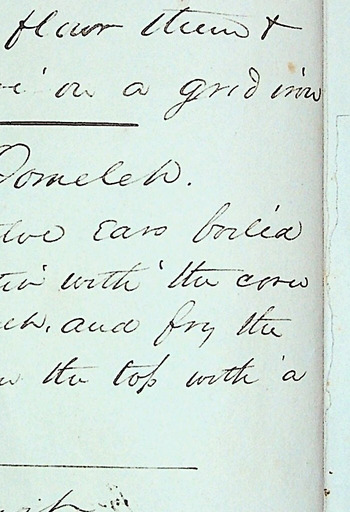 flour them &
on a grid iron
Oomeleh.
Ears boiled
with the corn
and fry the
the top with a